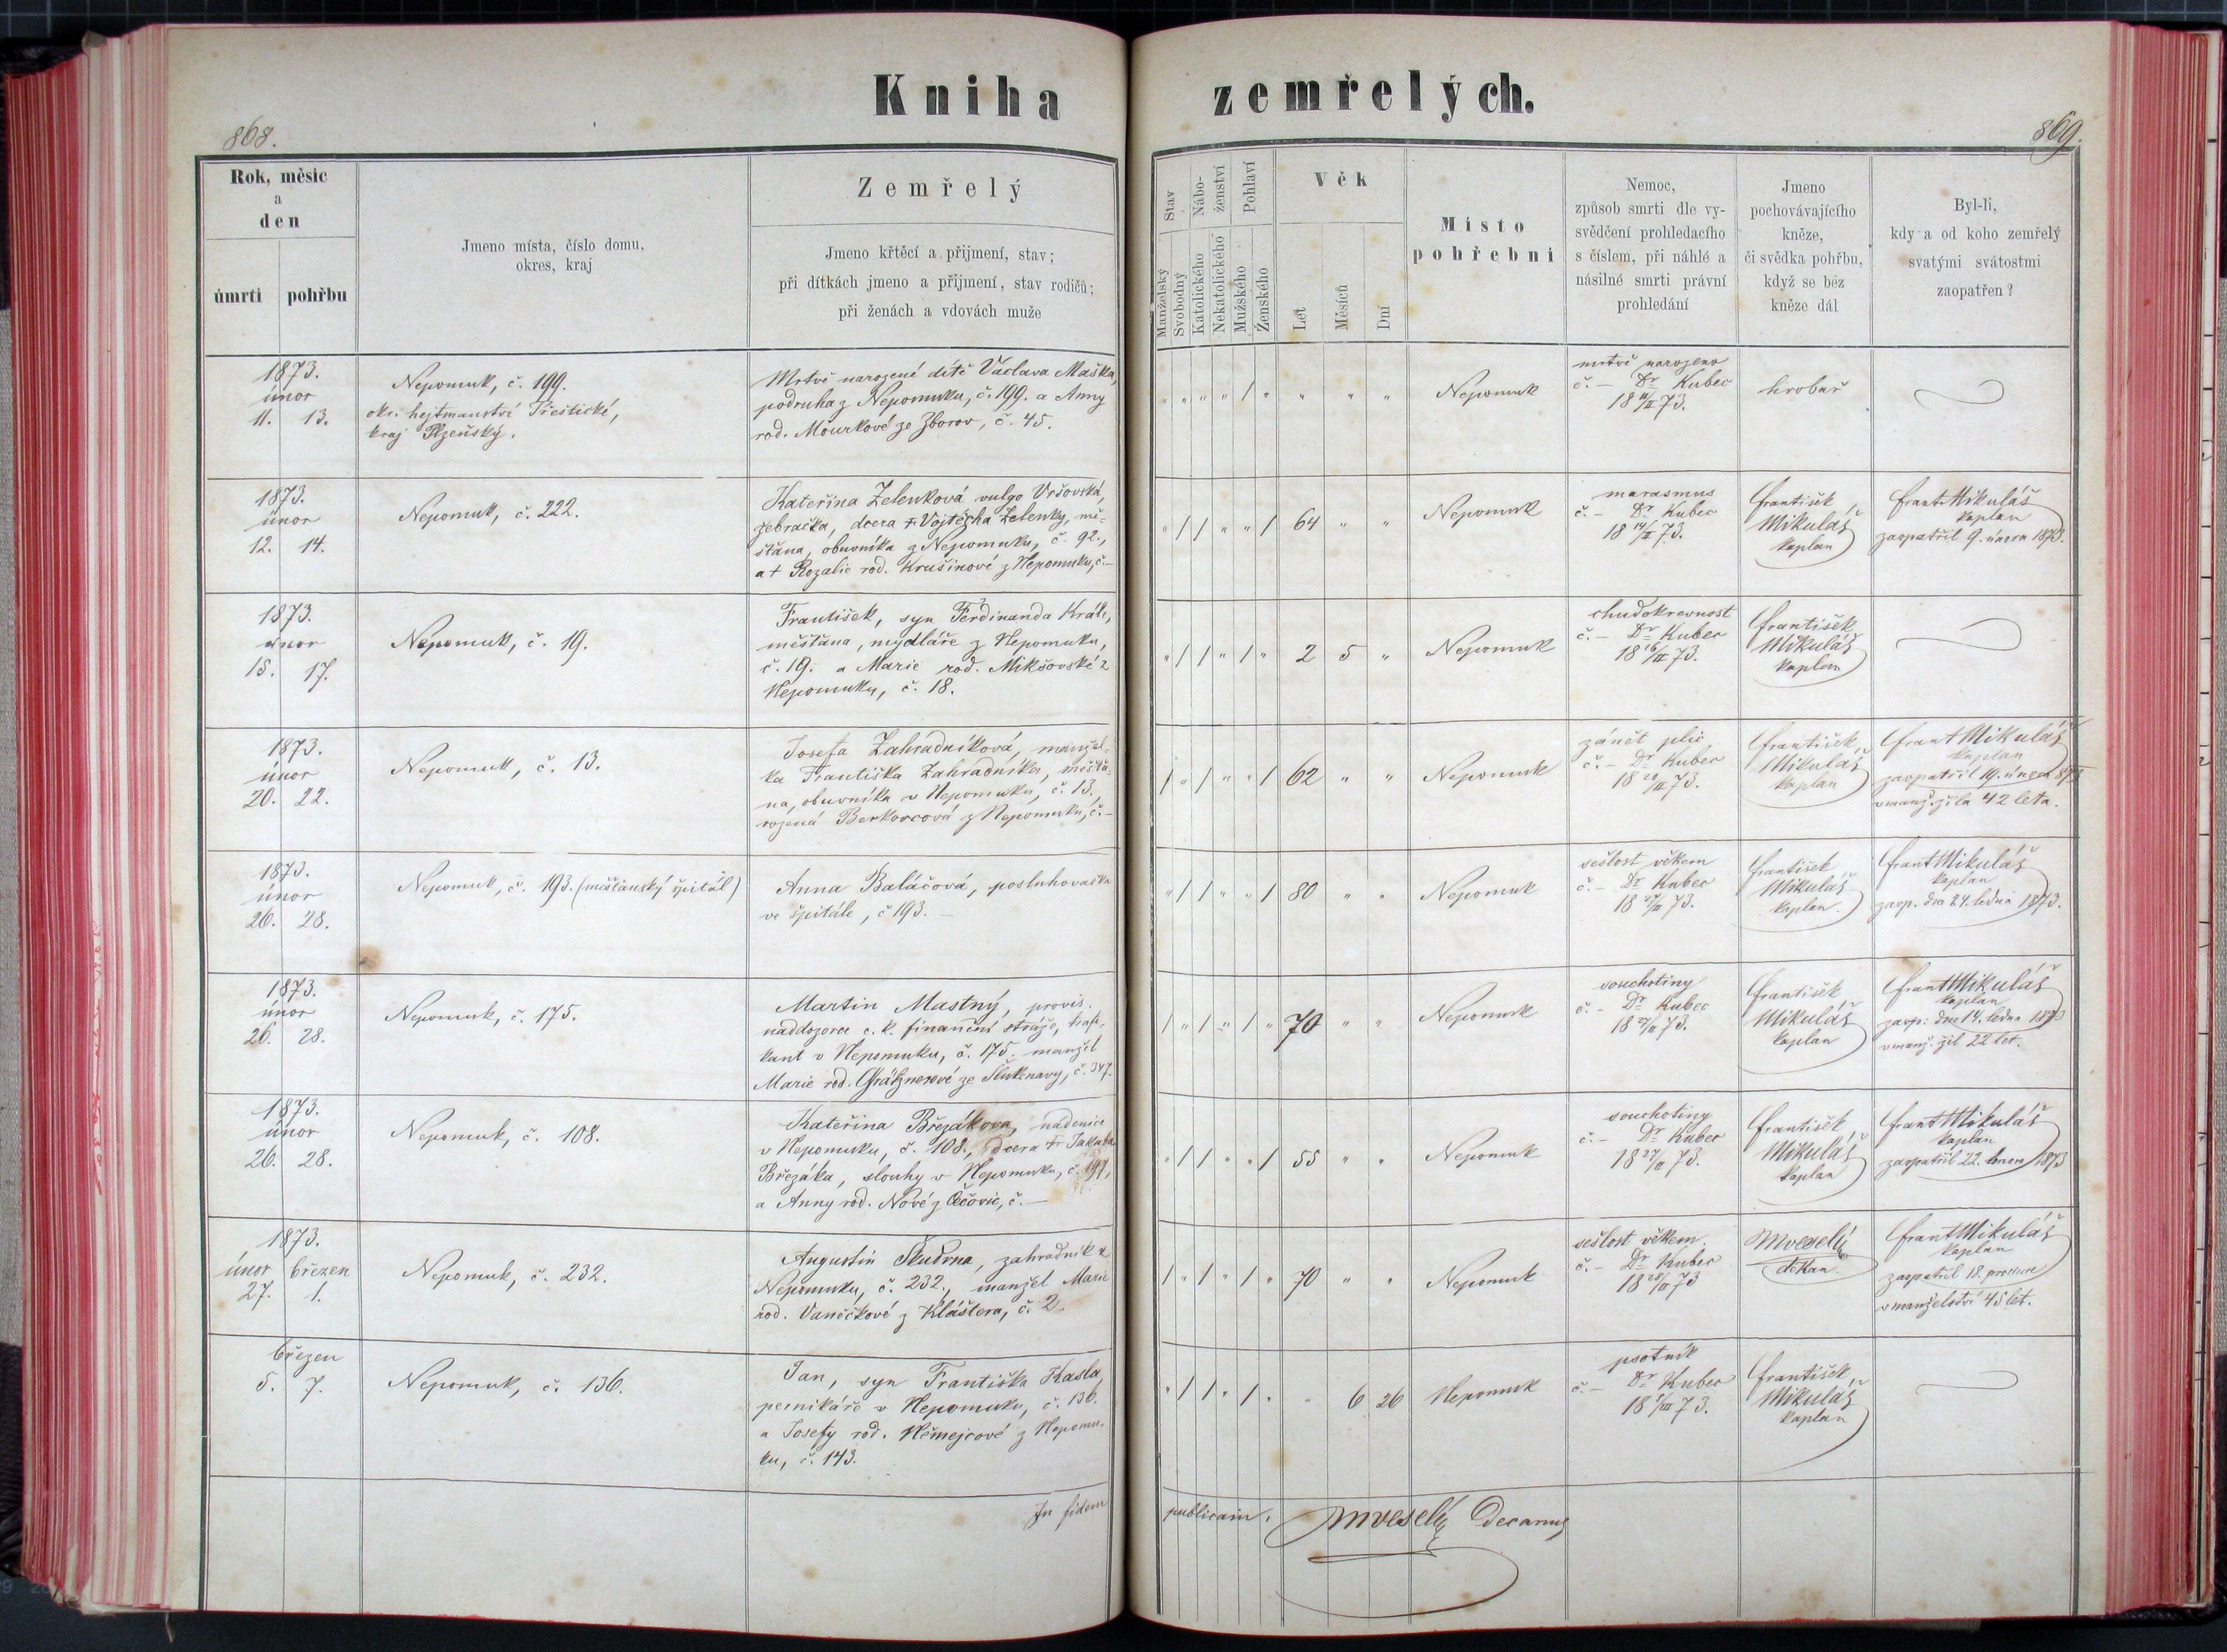 Kniha zemřelých.
868.
869.
Rok, měsíc
a
den
úmrtí
pohřbu
Jmeno místa, číslo domu,
okres, kraj
Zemřelý
Jmeno křtěcí a přijmení, stav;
při dítkách jmeno a přijmení, stav rodičů;
při ženách a vdovách muže
Stav
Manželský
Svobodný
Nábo-
ženství
Katolického
Nekatolického
Pohlaví
Mužského
Ženského
Věk
Let
Měsíců
Dní
Místo
pohřební
Nemoc,
způsob smrti dle vy-
svědčení prohledacího
s číslem, při náhlé a
násilné smrti právní
prohledání
Jmeno
pochovávajícího
kněze,
či svědka pohřbu,
když se bez
kněze dál
Byl-li,
kdy a od koho zemřelý
svatými svátostmi
zaopatřen?
1873.
únor
11. 13.
Nepomuk, č. 199.
okr. hejtmanství Přeštické,
kraj Plzeňský.
Mrtvě narozené dítě Václava Maška,
podruha z Nepomuka, č. 199. a Anny
rod. Mourkové ze Zborov, č. 45.
" " " " / " " " "
Nepomuk
mrtvě narozeno
č. – Dr Kubec
18 14/II 73.
hrobař
1873.
únor
12. 14.
Nepomuk, č. 222.
Kateřina Zelenková vulgo Vršovská,
žebračka, dcera † Vojtěcha Zelenky, mě-
šťana, obuvníka z Nepomuku, č. 92.,
a † Rozalie rod. Krušinové z Nepomuku, č. –
" / / " " / 64 " "
Nepomuk
marasmus
č. – Dr Kubec
18 14/II 73.
František
Mikuláš
kaplan
Frant Mikuláš
kaplan
zaopatřil 9. února 1873.
1873.
únor
15. 17.
Nepomuk, č. 19.
František, syn Ferdinanda Krále,
měšťana, mydláře z Nepomuku,
č. 19. a Marie rod. Mikšovské z
Nepomuku, č. 18.
" / / " / " 2 5 "
Nepomuk
chudokrevnost
č. – Dr Kubec
18 16/II 73.
František
Mikuláš
kaplan
1873.
únor
20. 22.
Nepomuk, č. 13.
Josefa Zahradníková, manžel-
ka Františka Zahradníka, měšťa-
na, obuvníka v Nepomuku, č. 13.,
rozená Berkovcová z Nepomuku, č. –
/ " / " " / 62 " "
Nepomuk
zánět plic
č. – Dr Kubec
18 20/II 73.
František
Mikuláš
kaplan
Frant Mikuláš
kaplan
zaopatřil 19. února 873
v manž. žila 42 leta.
1873.
únor
26. 28.
Nepomuk, č. 193. (měšťanský špitál)
Anna Baláčová, posluhovačka
ve špitále, č 193. –
" / / " " / 80 " "
Nepomuk
sešlost věkem
č. – Dr Kubec
18 27/II 73.
František
Mikuláš
kaplan.
Frant Mikuláš
kaplan
zaop. dne 24. ledna 1873.
1873.
únor
26. 28.
Nepomuk, č. 175.
Martin Mastný, provis.
naddozorce c. k. finanční stráže, trafi-
kant v Nepomuku, č. 175. manžel
Marie rod. Grätznerové ze Šlukenavy, č. 347.
/ " / " / " 70 " "
Nepomuk
souchotiny
č. – Dr Kubec
18 27/II 73.
František
Mikuláš
kaplan
Frant Mikuláš
kaplan
zaop: dne 14. ledna 1873
v manž. žil 22 let.
1873.
únor
26. 28.
Nepomuk, č. 108.
Kateřina Březákova, nádenice
v Nepomuku, č. 108., dcera † Jakuba
Březáka, slouhy v Nepomuku, č. 197,
a Anny rod. Nové z Čečovic, č. –
" / / " " / 55 " "
Nepomuk
souchotiny
č. – Dr Kubec
18 27/II 73.
František
Mikuláš
kaplan
Frant Mikuláš
kaplan
zaopatřil 22. února 1873
1873.
únor březen
27. 1.
Nepomuk, č. 232.
Augustin Škudrna, zahradník z
Nepomuku, č. 232., manžel Marie
rod. Vaněčkové z Kláštera, č. 2.
/ " / " / " 70 " "
Nepomuk
sešlost věkem.
č. – Dr Kubec
18 28/II 73
MVeselý
děkan
Frant Mikuláš
kaplan
zaopatřil 18. prosince
v manželství 45 let.
březen
5. 7.
Nepomuk, č. 136.
Jan, syn Františka Kasla,
pernikáře v Nepomuku, č. 136.
a Josefy rod. Němejcové z Nepomu-
ku, č. 143.
" / / " / " " 6 26
Nepomuk
psotník
č. – Dr Kubec
18 5/III 73.
František
Mikuláš
kaplan
In fidem publicam.
MVeselý Decanus